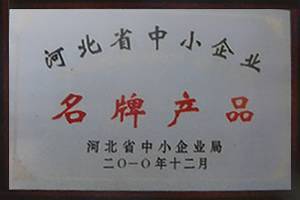 河北省中小企业
名牌产品
河北省中小企业局
二〇一〇年十二月